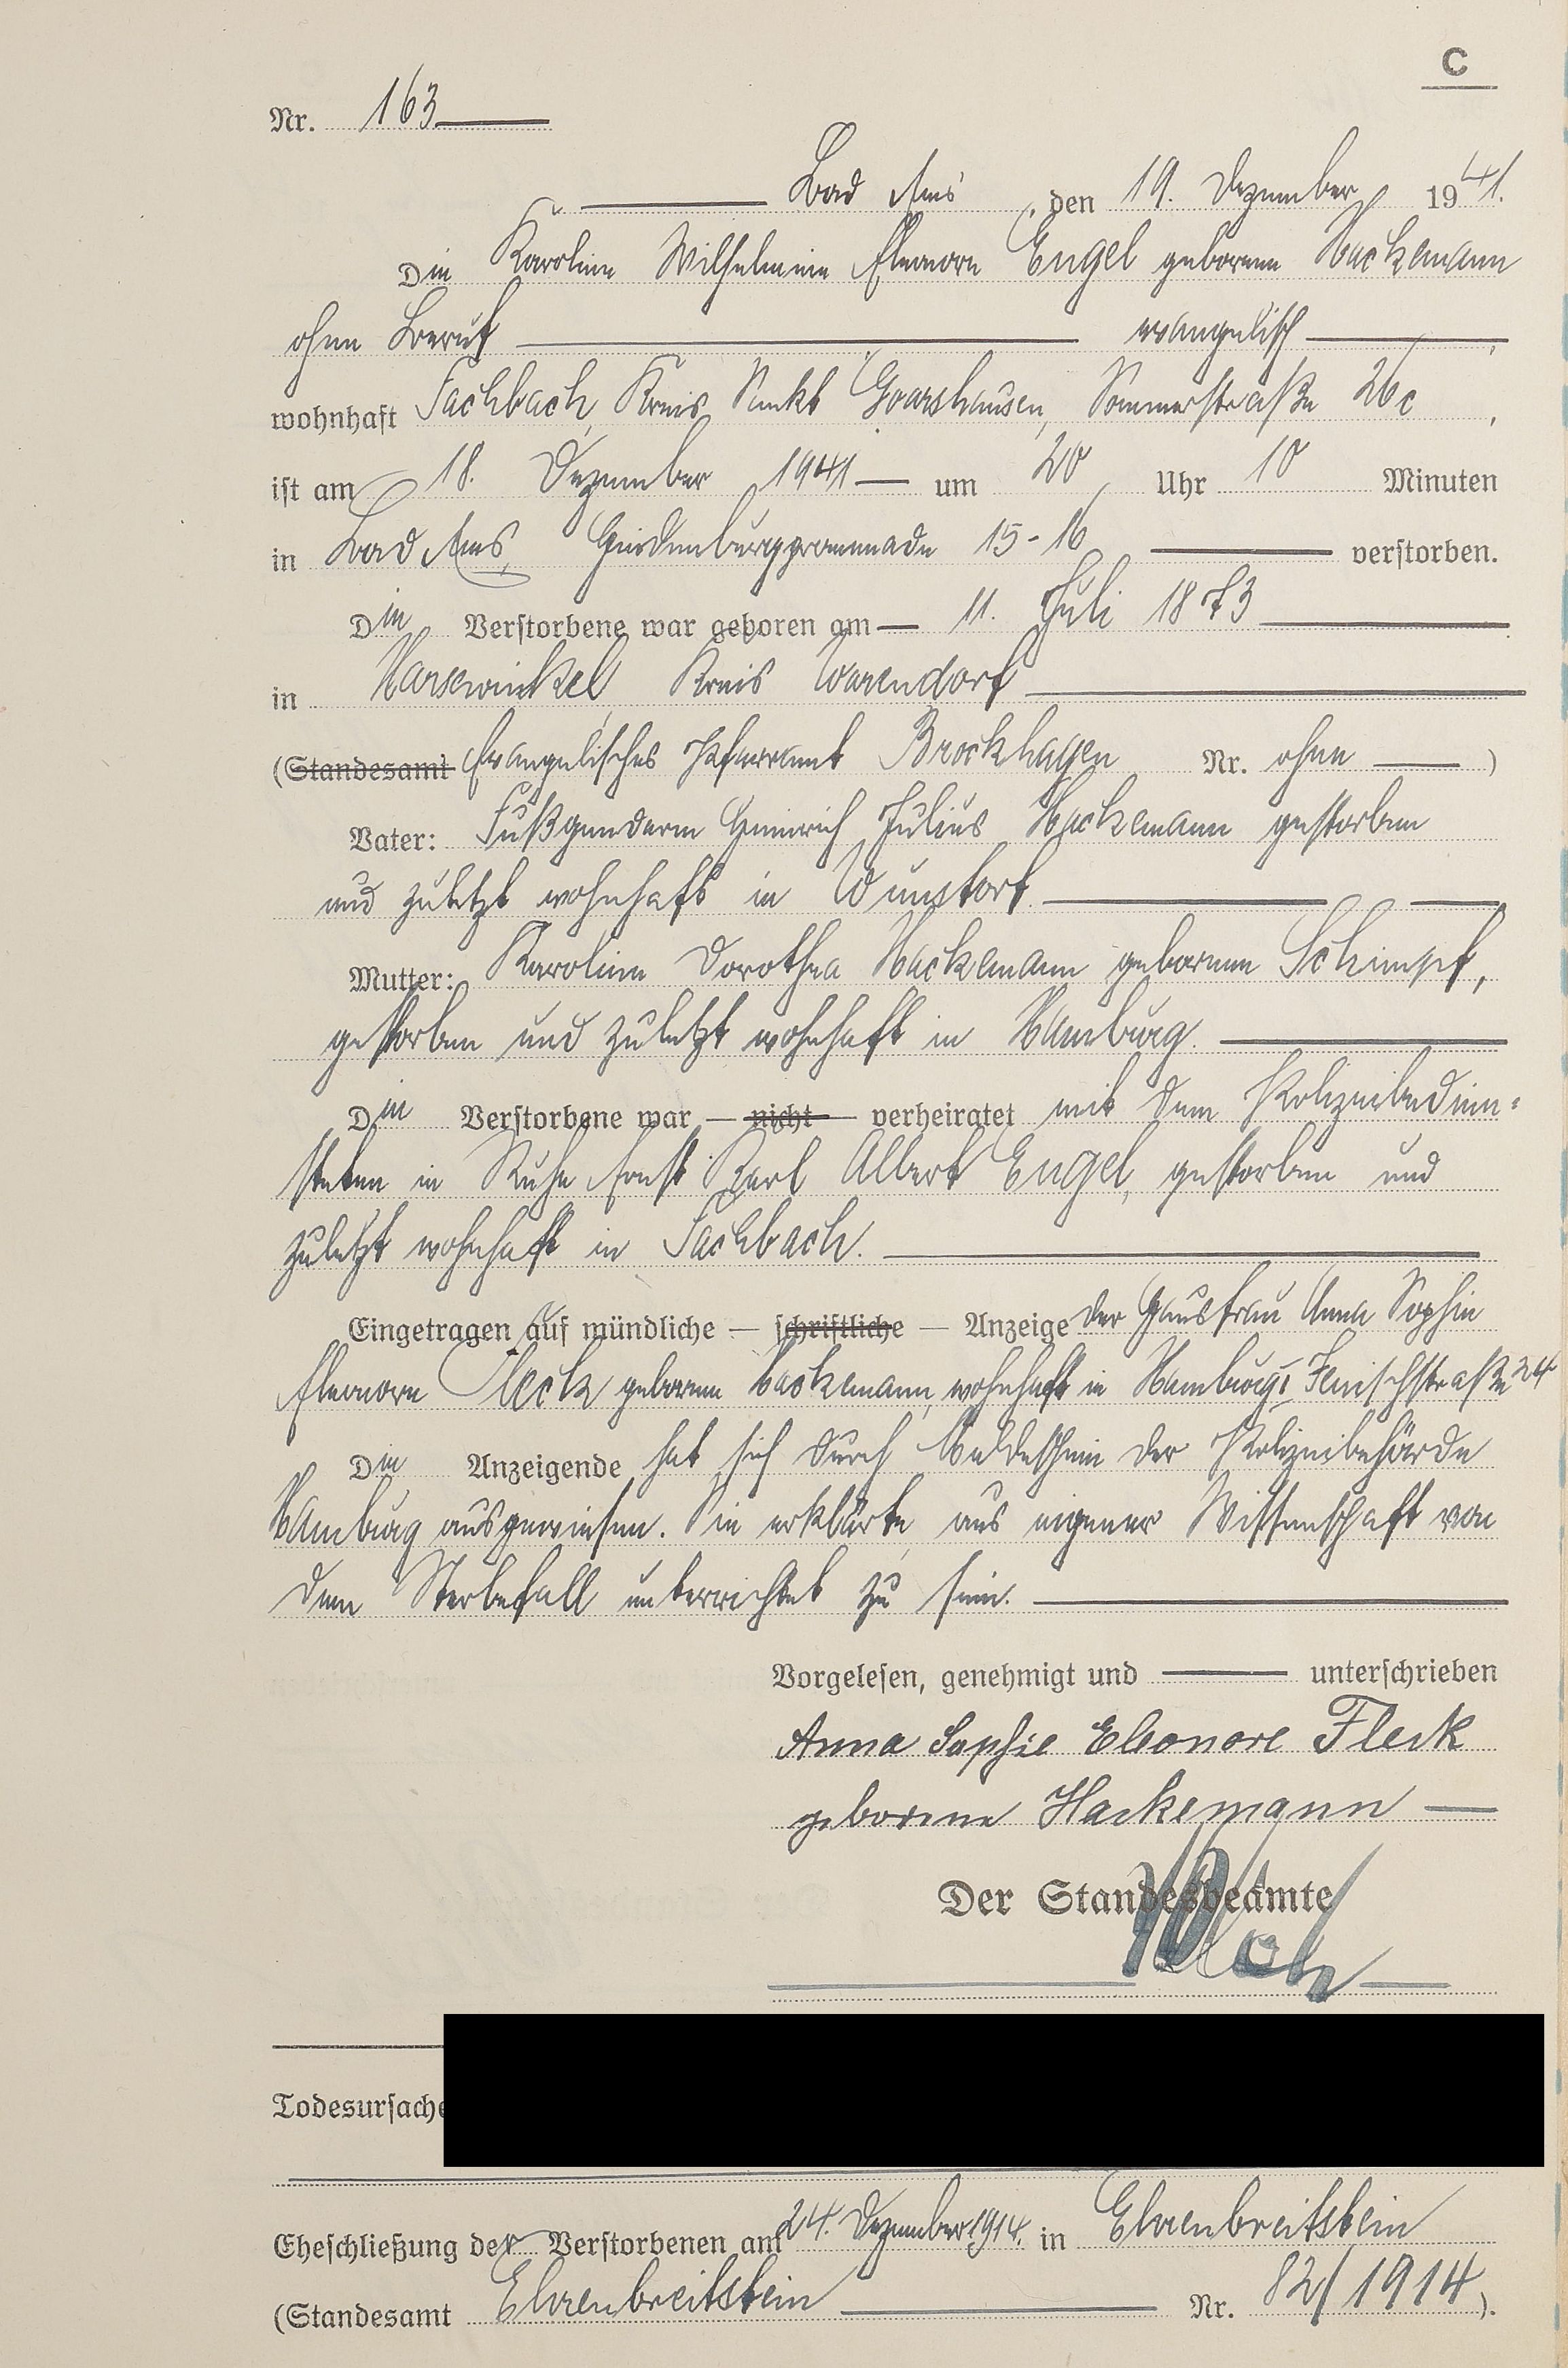 C
Nr. 163
Bad Ems, den 19. Dezember 1941.
Die Karoline Wilhelmine Eleonore Engel geborene Hackemann
ohne Beruf evangelisch,
wohnhaft Fachbach, Kreis Sankt Goarshausen, Sommerstraße 26c,
ist am 18. Dezember 1941 um 20 Uhr 10 Minuten
in Bad Ems, Hindenburgpromenade 15-16 verstorben.
Die Verstorbene war geboren am 11. Juli 1873
in Harsewinkel, Kreis Warendorf
(Standesamt Evangelisches Pfarramt Brockhagen Nr. ohne)
Vater: Fußgendarm Heinrich Julius Hackemann gestorben
und zuletzt wohnhaft in Wunstorf.
Mutter: Karoline Dorothea Hackemann geborene Schimpf,
gestorben und zuletzt wohnhaft in Hamburg.
Die Verstorbene war — nicht — verheiratet mit dem Polizeibedien-
steten in Ruhe Ernst Karl Albert Engel, gestorben und
zuletzt wohnhaft in Fachbach.
Eingetragen auf mündliche — schriftliche — Anzeige der Hausfrau Anna Sophie
Eleonore Fleck geborene Hackemann, wohnhaft in Hamburg, 24
Die Anzeigende hat sich durch Meldeschein der Polizeibehörde
Hamburg ausgewiesen. Sie erklärte, aus eigener Wissenschaft von
dem Sterbefall unterrichtet zu sein.
Vorgelesen, genehmigt und unterschrieben
Anna Sophie Eleonore Fleck
geborene Hackemann
Der Standesbeamte
Todesursache
Eheschließung der Verstorbenen am 24. Dezember 1914. in Ehrenbreitstein
(Standesamt Ehrenbreitstein Nr. 82/1914).